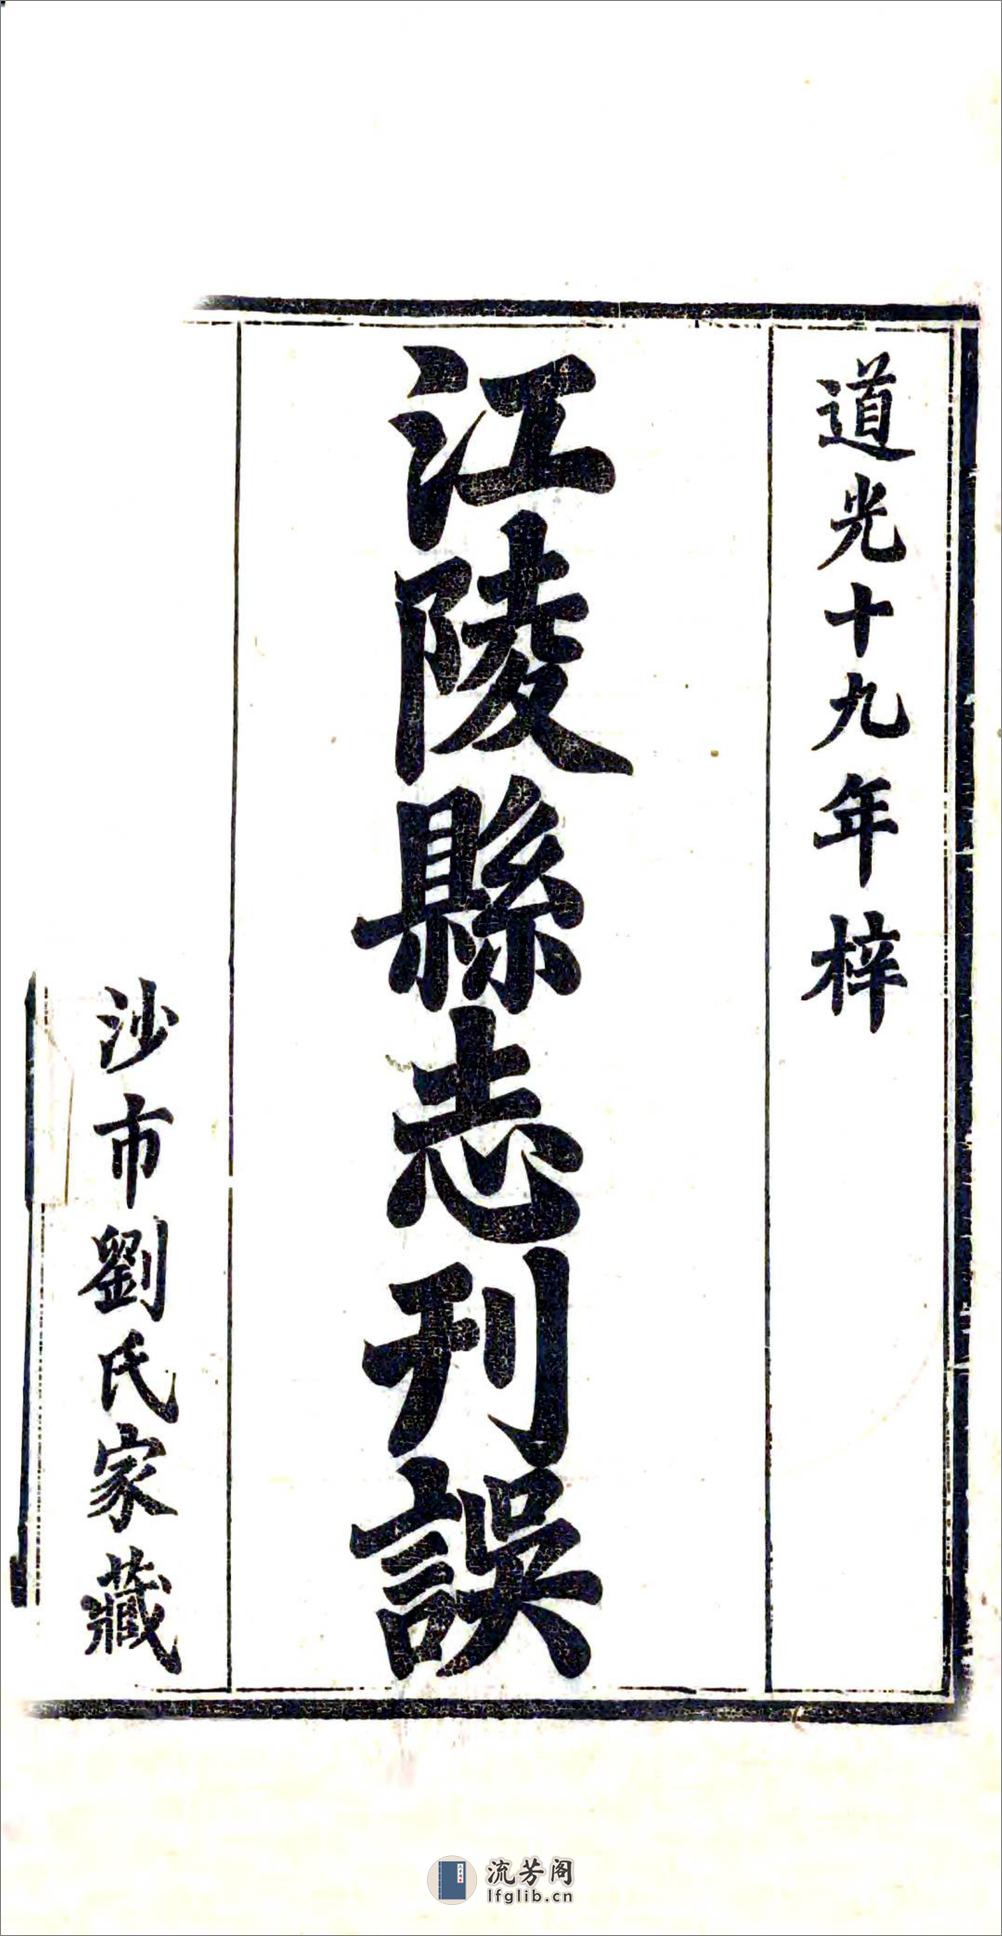 道光十九年梓
江陵縣志刊誤
沙市劉氏家藏
流芳阁
lfglib.cn